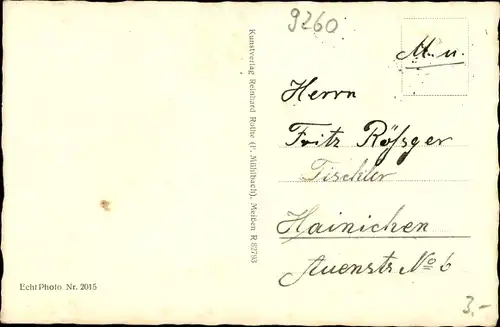 9260
M. u.
Herrn
Fritz Rößger
Tischler
Hainichen
Auenstr. No 6
3,-
Kunstverlag Reinhard Rothe (P. Mühlbach), Meißen R 82783
Echt Photo Nr. 2015